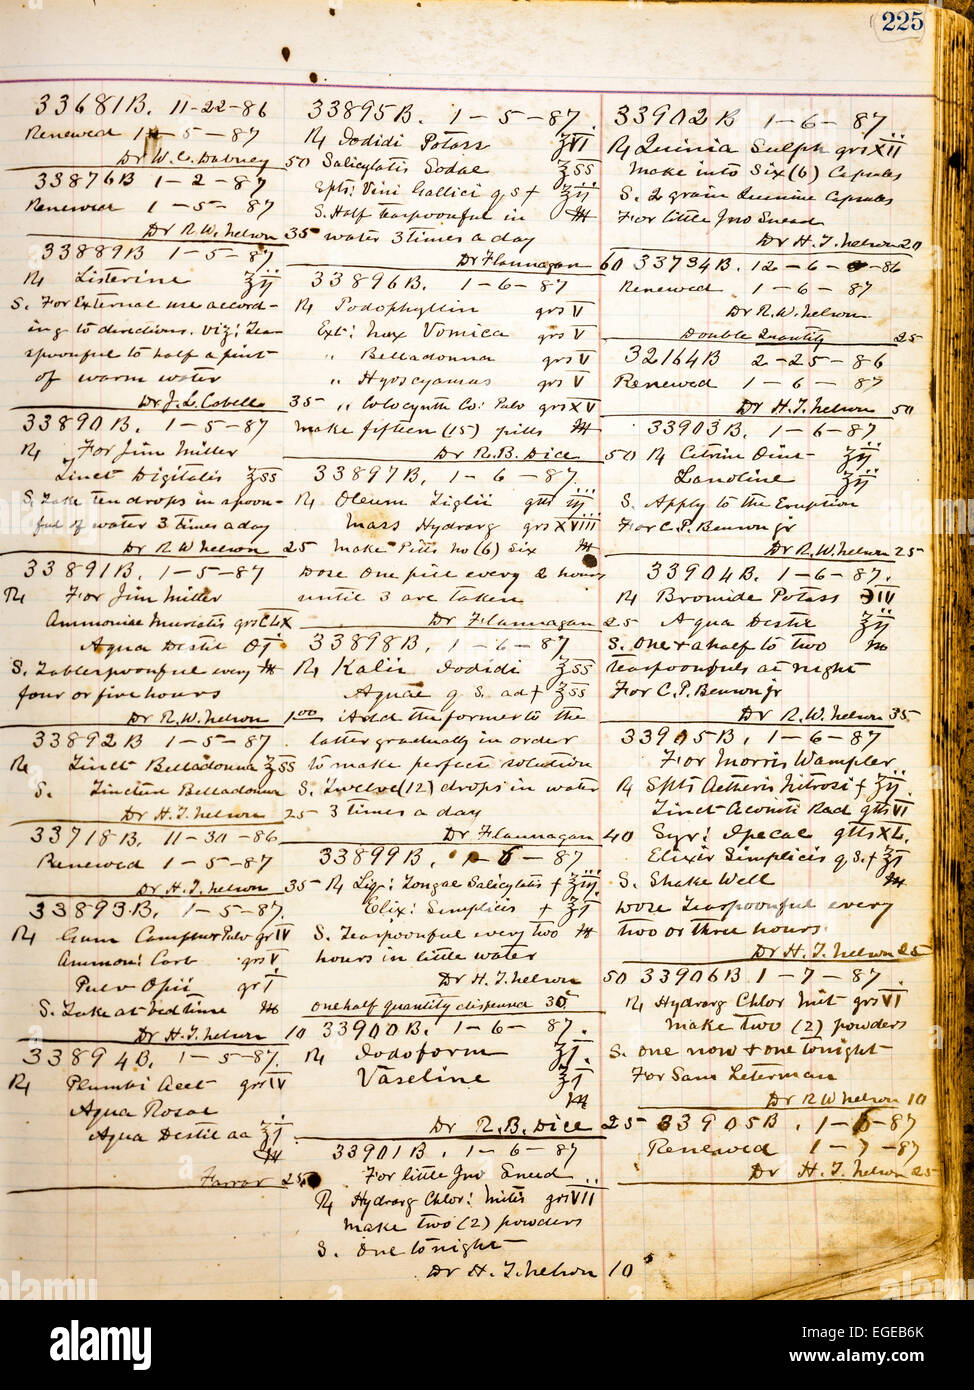 225
33681B. 11-22-86
Renewed 1-5-87
Dr W. C. Dabney 50
33876B 1-2-87
Renewed 1-5-87
Dr R.W. Nelson 35
33889B 1-5-87
R Listerine ʒij
S. For External use accord-
ing to directions. Viz: Tea-
spoonful to half a pint
of warm water
Dr J. L. Cabell 35
33890B. 1-5-87
R For Jim Miller
Tinct Digitalis ʒss
S. Take ten drops in a spoon-
ful of water 3 times a day
Dr R W Nelson 25
33891B. 1-5-87
R For Jim Miller
Ammoniae Muriatis grs
Aqua Destil
S. Tablespoonful every M
four or five hours
Dr R. W. Nelson 1.00
33892B 1-5-87
R Tinct Belladonna ʒss
S. Tincture Belladonna
Dr H. T. Nelson 25
33718B. 11-30-86
Renewed 1-5-87
Dr H. T. Nelson 35
33893B. 1-5-87.
R Gum Camphor Pulv gr IV
Ammon: Carb grs V
Pulv Opii gr I
S. Take at bedtime M
Dr H. T. Nelson 10
33894B. 1-5-87.
R Plumbi Acet grs IV
Aqua Rosae
Aqua Destil aa ʒi
M
Farrar 25
33895B. 1-5-87.
R Iodidi Potass ʒVI
Salicylatis Sodae ʒss
Spts: Vini Gallici q s + ʒij
S. Half teaspoonful in M
water 3 times a day
Dr Flannagan 60
33896B. 1-6-87
R Podophyllin grs V
Ext: Nux Vomica grs V
" Belladonna grs V
" Hyoscyamus grs V
" Colocynth Co: Pulv grs XV
Make fifteen (15) pills M
Dr R.B. Dice 50
33897B, 1-6-87.
R Oleum Tiglii gtts iij
Mass Hydrarg grs XVIII
Make Pills no (6) Six M
Dose One pill every 2 hours
until 3 are taken
Dr Flannagan 25
33898B 1-6-87
R Kalii Iodidi ʒss
Aquae q. S. ad + ʒss
Add the former to the
latter gradually in order
to make perfect solution
S. Twelve (12) drops in water
3 times a day
Dr Flannagan 40
33899B. 1-6-87
R Liq: Tongae Salicylatis + ʒiij
Elix: Simplicis + ʒi
S. Teaspoonful every two M
hours in little water
Dr H. T. Nelson 50
one half quantity dispensed 30
33900B. 1-6-87.
R Iodoform ʒi.
Vaseline ʒi
M
Dr R.B. Dice 25
33901B 1-6-87
For little Jno Snead
R Hydrarg Chlor: Mitis grs VII
Make two (2) powders
S. One tonight
Dr H. T. Nelson 10
33902B 1-6-87
R Quinia Sulph grs XII
Make into Six (6) Capsules
S. 2 grain Quinine Capsules
For little Jno Snead
Dr H. T. Nelson 20
33734B. 12-6-86
Renewed 1-6-87
Dr R. W. Nelson
Double Quantity 25
32164B 2-25-86
Renewed 1-6-87
Dr H. T. Nelson 50
33903B. 1-6-87
R Citrin Oint ʒij
Lanoline ʒij
S. Apply to the Eruption
For C. P. Benson jr
Dr R.W. Nelson 25
33904B. 1-6-87.
R Bromide Potass ʒIV
Aqua Destil ʒij
S. One & a half to two M
teaspoonfuls at night
For C. P. Benson jr
Dr R. W. Nelson 35
33905B. 1-6-87
For Morris Wampler
R Spts Aetheris Nitrosi + ʒij
Tinct Aconiti Rad gtts VI
Syr: Ipecac gtts XL.
Elixir Simplicis q. S. + ʒi
S. Shake Well M
Dose Teaspoonful every
two or three hours.
Dr H. T. Nelson 25
33906B 1-7-87.
R Hydrarg Chlor Mit grs VI
Make two (2) powders
S. one now & one tonight
For Sam Leterman
Dr R W Nelson 10
33905B. 1-6-87
Renewed 1-7-87
Dr H. T. Nelson 25
alamy
Image ID: EGEB6K
www.alamy.com